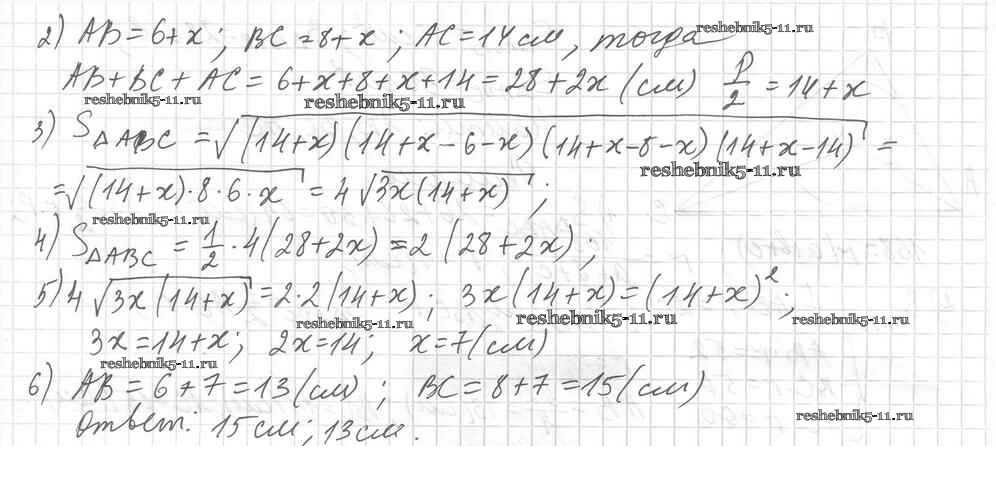 reshebnik5-11.ru
2) AB = 6+x; BC = 8+x; AC = 14 см, тогда
AB + BC + AC = 6+x+8+x+14 = 28+2x (см) P/2 = 14+x
reshebnik5-11.ru reshebnik5-11.ru
3) S△ABC = √(14+x)(14+x-6-x)(14+x-8-x)(14+x-14) =
reshebnik5-11.ru
= √(14+x)·8·6·x = 4√3x(14+x);
reshebnik5-11.ru
4) S△ABC = 1/2 · 4(28+2x) = 2(28+2x);
5) 4√3x(14+x) = 2·2(14+x); 3x(14+x) = (14+x)²;
reshebnik5-11.ru reshebnik5-11.ru reshebnik5-11.ru
3x = 14+x; 2x = 14; x = 7(см)
reshebnik5-11.ru
6) AB = 6+7 = 13(см); BC = 8+7 = 15(см)
reshebnik5-11.ru
Ответ: 15 см; 13 см.